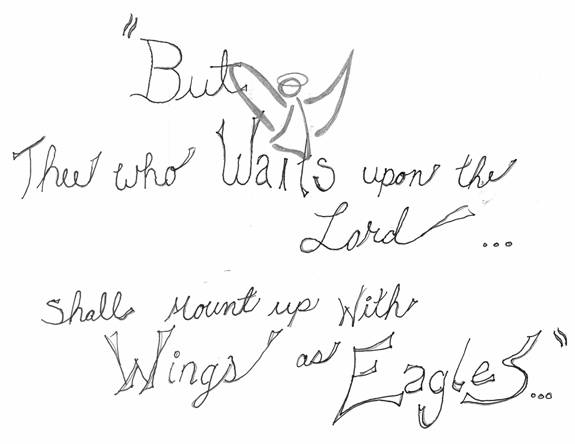 "But
Thee who Waits upon the
Lord ...
Shall Mount up With
Wings as Eagles..."